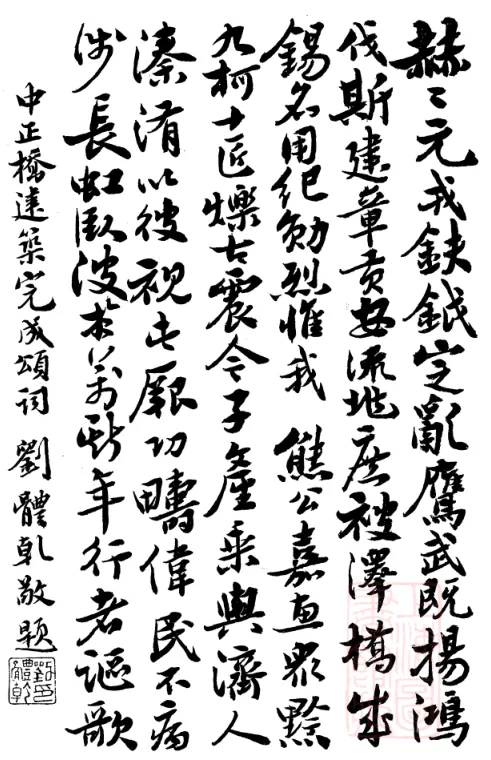 赫〻元戎鈇鉞定亂鷹武既揚鴻
伐斯建章貢安流地庶被澤橋成
錫名用紀勛烈惟我 熊公嘉惠眾黔
九柯十匠爍古震今子產乘輿濟人
溱洧以彼視此厥功疇偉民不病
涉長虹臥波於萬斯年行者謳歌
中正橋建築完成頌詞 劉體乾敬題